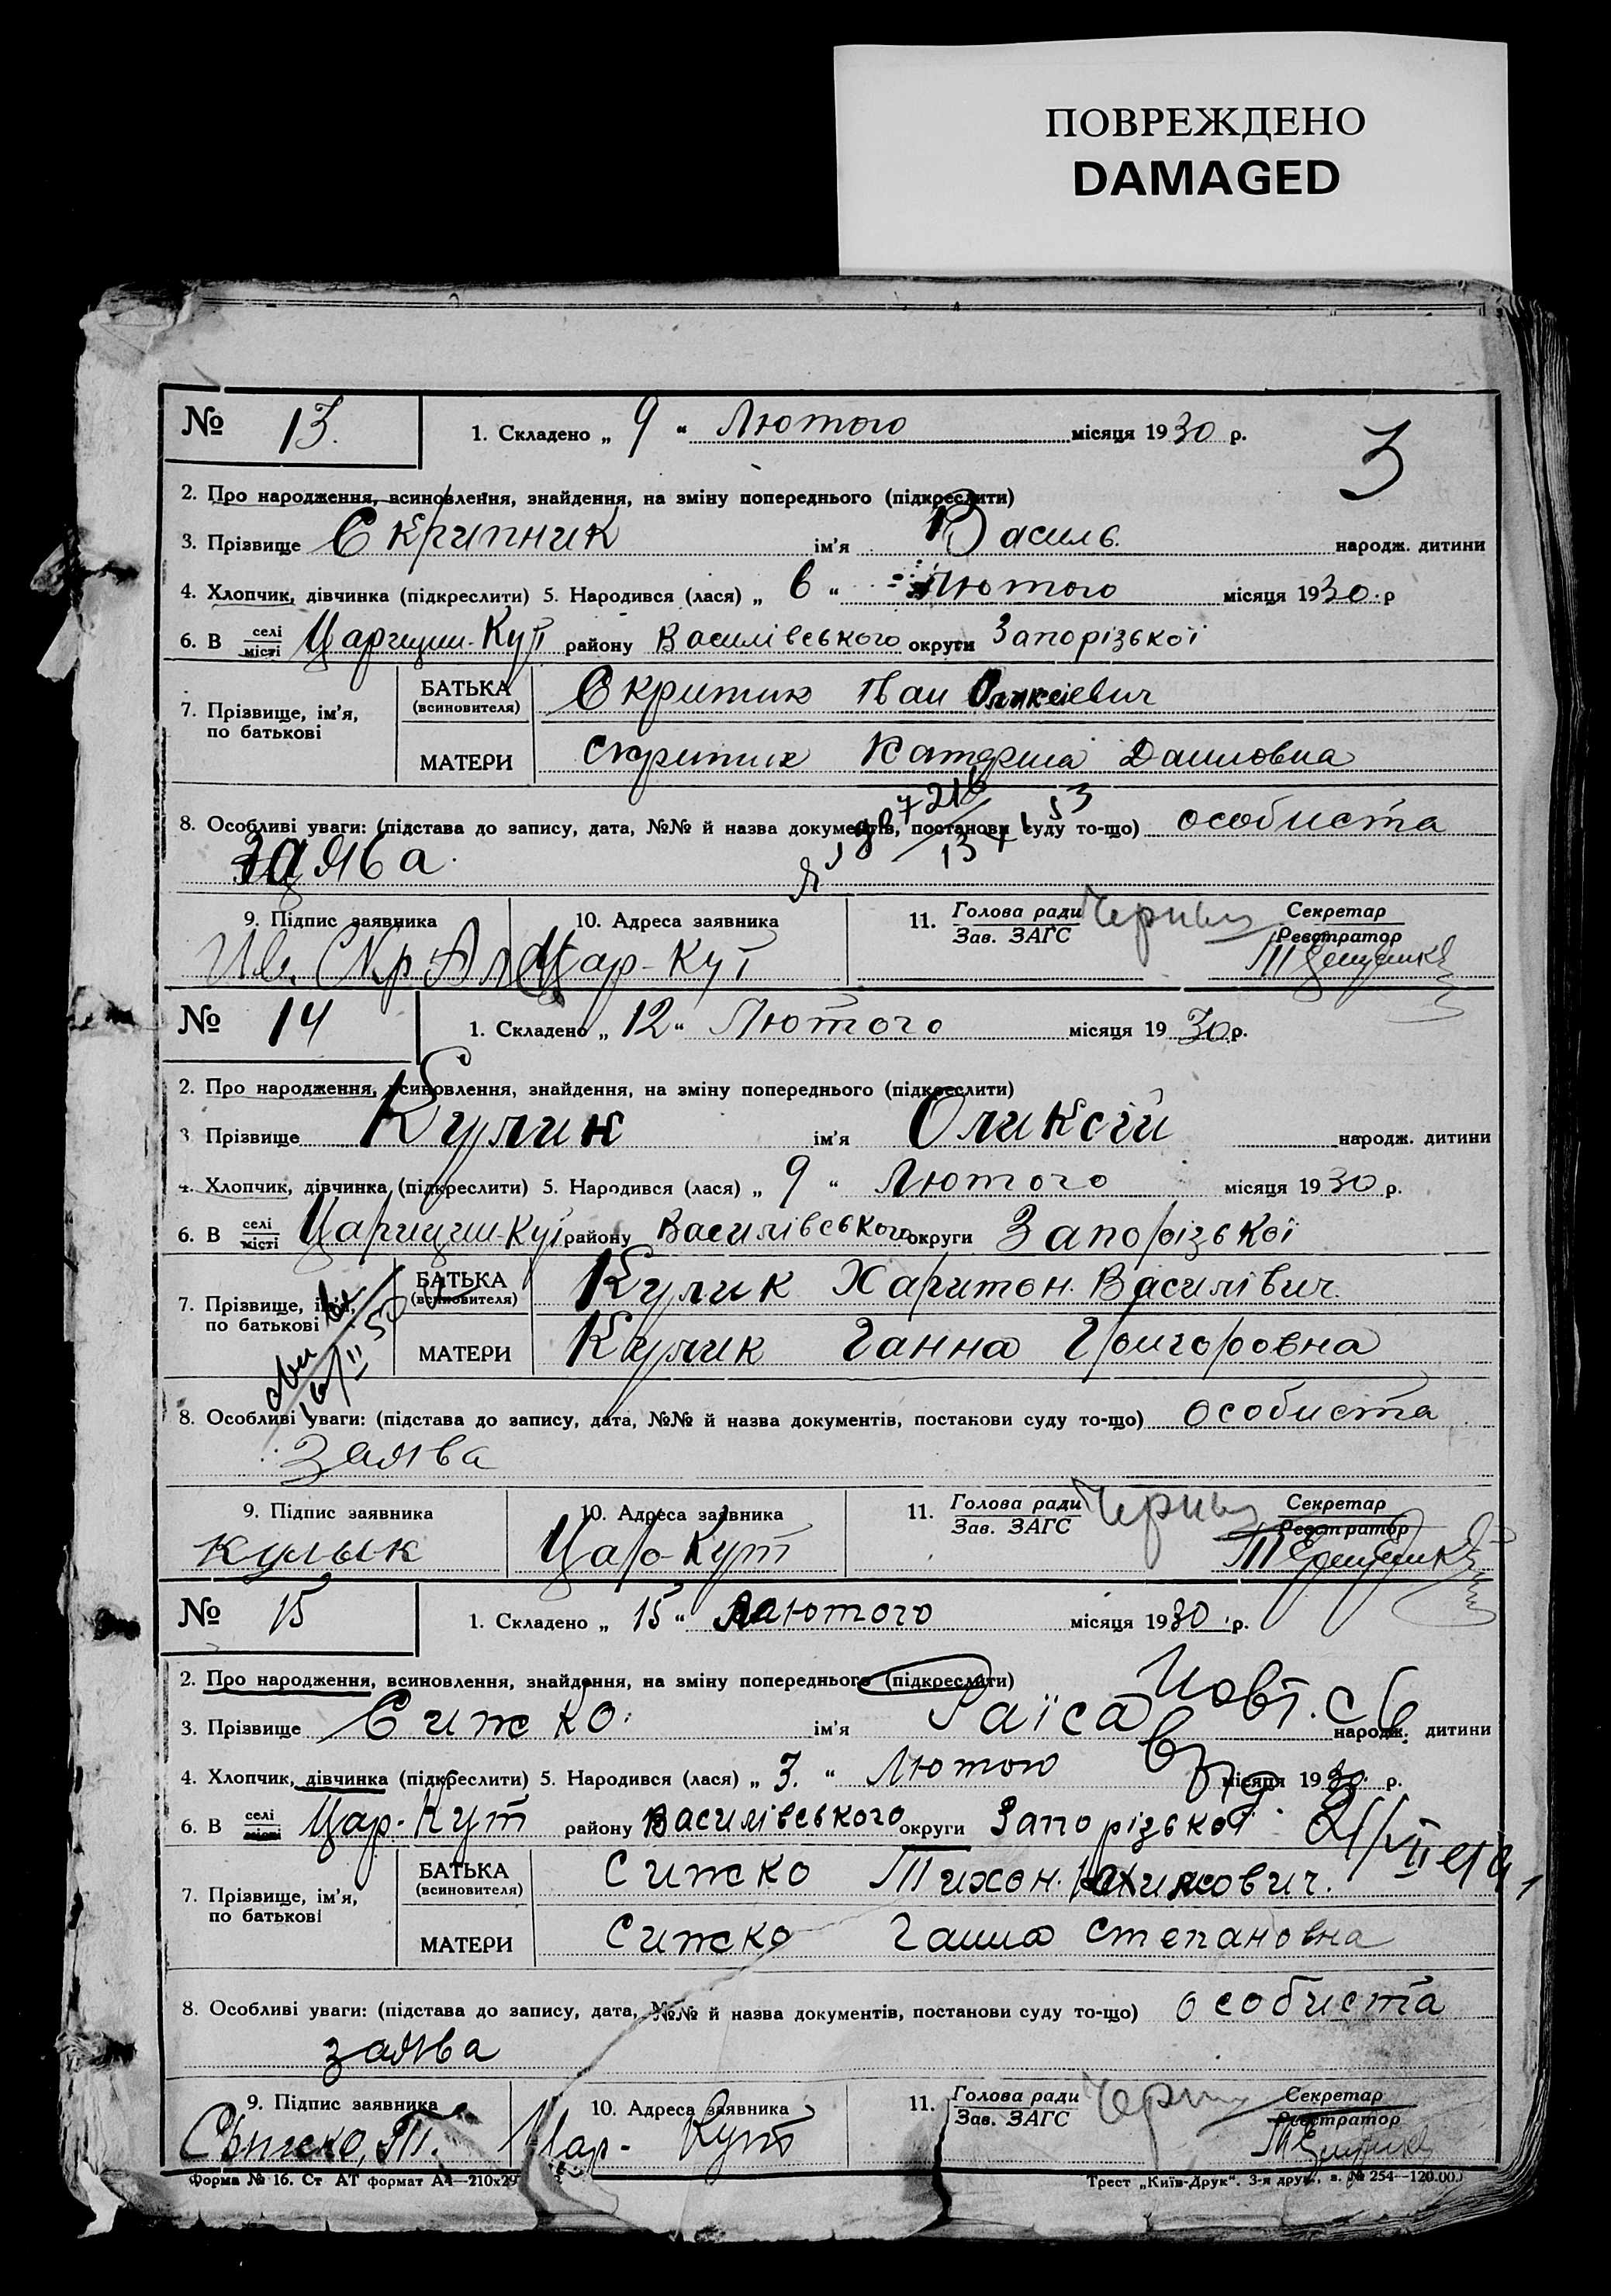 ПОВРЕЖДЕНО
DAMAGED
№ 13. 1. Складено „ 9 “ Лютого місяця 1930 р.
3
2. Про народження, всиновлення, знайдення, на зміну попереднього (підкреслити)
3. Прізвище Скрипник ім'я Василь. народж. дитини
4. Хлопчик, дівчинка (підкреслити) 5. Народився (лася) „ 6 “ Лютого місяця 1930. р
6. В селі місті Царицин-Кут району Василівського округи Запорізької
7. Прізвище, ім'я, по батькові
БАТЬКА (всиновителя) Скрипник Іван Оликсієвич
МАТЕРИ Скрипник Катерина Даниловна
8. Особливі уваги: (підстава до запису, дата, №№ й назва документів, постанови суду то-що) особиста
заява.
9. Підпис заявника 10. Адреса заявника 11. Голова ради Секретар
Зав. ЗАГС Реєстратор
Цар-Кут
№ 14 1. Складено „ 12 “ Лютого місяця 1930 р.
2. Про народження, всиновлення, знайдення, на зміну попереднього (підкреслити)
3. Прізвище Кулик ім'я Оликсій народж. дитини
4. Хлопчик, дівчинка (підкреслити) 5. Народився (лася) „ 9 “ Лютого місяця 1930 р.
6. В селі місті Царицин-Кут району Василівського округи Запорізької
7. Прізвище, ім'я, по батькові
БАТЬКА (всиновителя) Кулик Харитон. Василівич.
МАТЕРИ Кулик Ганна Григоровна
8. Особливі уваги: (підстава до запису, дата, №№ й назва документів, постанови суду то-що) особиста
заява
9. Підпис заявника 10. Адреса заявника 11. Голова ради Секретар
Зав. ЗАГС Реєстратор
Кулык Цар-Кут
№ 15 1. Складено „ 15 “ Лютого місяця 1930 р.
2. Про народження, всиновлення, знайдення, на зміну попереднього (підкреслити)
3. Прізвище Сижко. ім'я Раїса народж. дитини
4. Хлопчик, дівчинка (підкреслити) 5. Народився (лася) „ 3. “ Лютого місяця 1930. р.
6. В селі місті Цар-Кут району Василівського округи Запорізької
7. Прізвище, ім'я, по батькові
БАТЬКА (всиновителя) Сижко Тихон.
МАТЕРИ Сижко Ганна Степановна
8. Особливі уваги: (підстава до запису, дата, №№ й назва документів, постанови суду то-що) особиста
заява
9. Підпис заявника 10. Адреса заявника 11. Голова ради Секретар
Зав. ЗАГС Реєстратор
Сыжко, Т. Цар-Кут
Форма № 16. Ст АТ формат А4—210х29
Трест „Київ-Друк“. 3-я друк., з. № 254—120.00